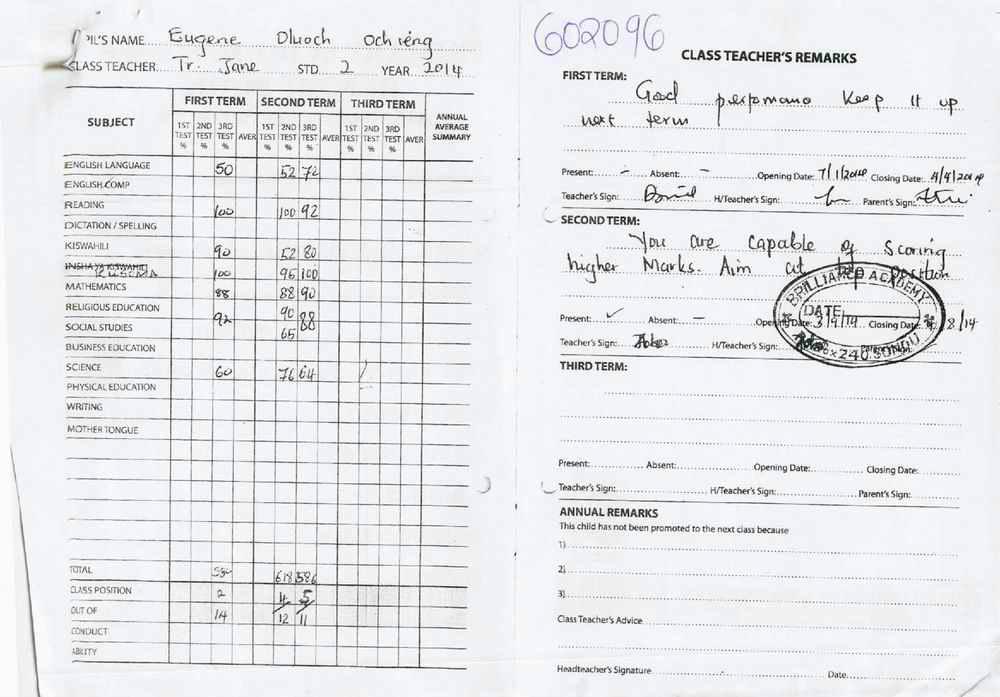 PIL'S NAME Eugene Oluoch Ochieng
CLASS TEACHER Tr. Jane STD 2 YEAR 2014
SUBJECT FIRST TERM SECOND TERM THIRD TERM ANNUAL AVERAGE SUMMARY
1ST TEST % 2ND TEST % 3RD TEST % AVER 1ST TEST % 2ND TEST % 3RD TEST % AVER 1ST TEST % 2ND TEST % 3RD TEST % AVER
ENGLISH LANGUAGE 50 52 72
ENGLISH COMP
READING 100 100 92
DICTATION / SPELLING
KISWAHILI 90 52 80
INSHA YA KISWAHILI KUSOMA 100 95 100
MATHEMATICS 88 88 90
RELIGIOUS EDUCATION 92 90 88
SOCIAL STUDIES 65
BUSINESS EDUCATION
SCIENCE 60 76 64
PHYSICAL EDUCATION
WRITING
MOTHER TONGUE
TOTAL 618 586
CLASS POSITION 2 4 5
OUT OF 14 12 11
CONDUCT
ABILITY
602096
CLASS TEACHER'S REMARKS
FIRST TERM:
Good perfomano Keep it up
next term
Present: - Absent: - Opening Date: 7/1/2014 Closing Date: 4/4/2014
Teacher's Sign: H/Teacher's Sign: Parent's Sign:
SECOND TERM:
You are capable of scoring
higher Marks. Aim at top position
Present: ✓ Absent: - Opening Date: Closing Date: 8/14
Teacher's Sign: H/Teacher's Sign:
BRILLIANCE ACADEMY
DATE
Box 240. SONDU
THIRD TERM:
Present: Absent: Opening Date: Closing Date:
Teacher's Sign: H/Teacher's Sign: Parent's Sign:
ANNUAL REMARKS
This child has not been promoted to the next class because
1)
2)
3)
Class Teacher's Advice
Headteacher's Signature Date